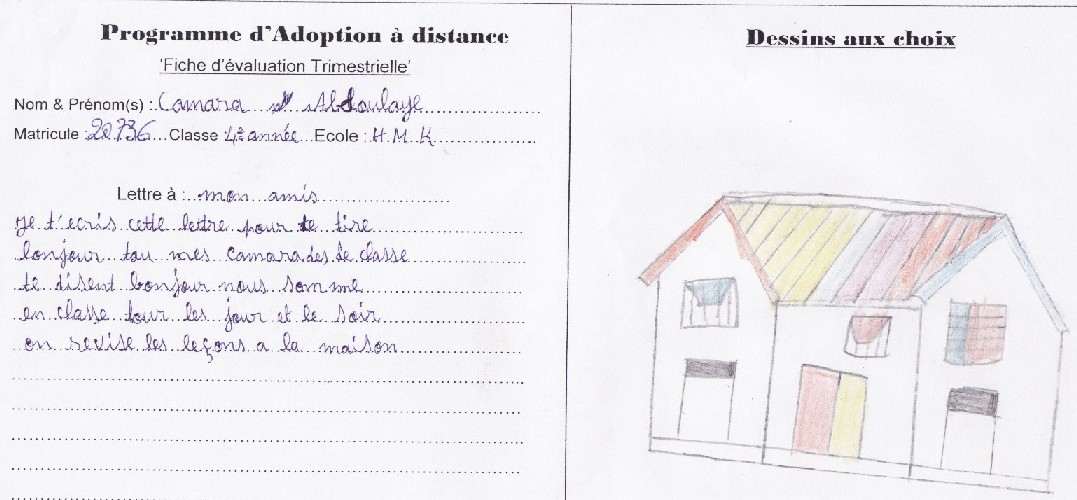 Programme d'Adoption à distance
'Fiche d'évaluation Trimestrielle'
Nom & Prénom(s) : Camara Abdoulaye
Matricule : 20736 Classe 4e année Ecole : H.M.K
Lettre à : mon amis
Je t'ecris cette lettre pour te dire
bonjour tou mes camarades de classe
te disent bonjour nous somme
en classe tour les jour et le soir
on revise les leçons a la maison
Dessins aux choix